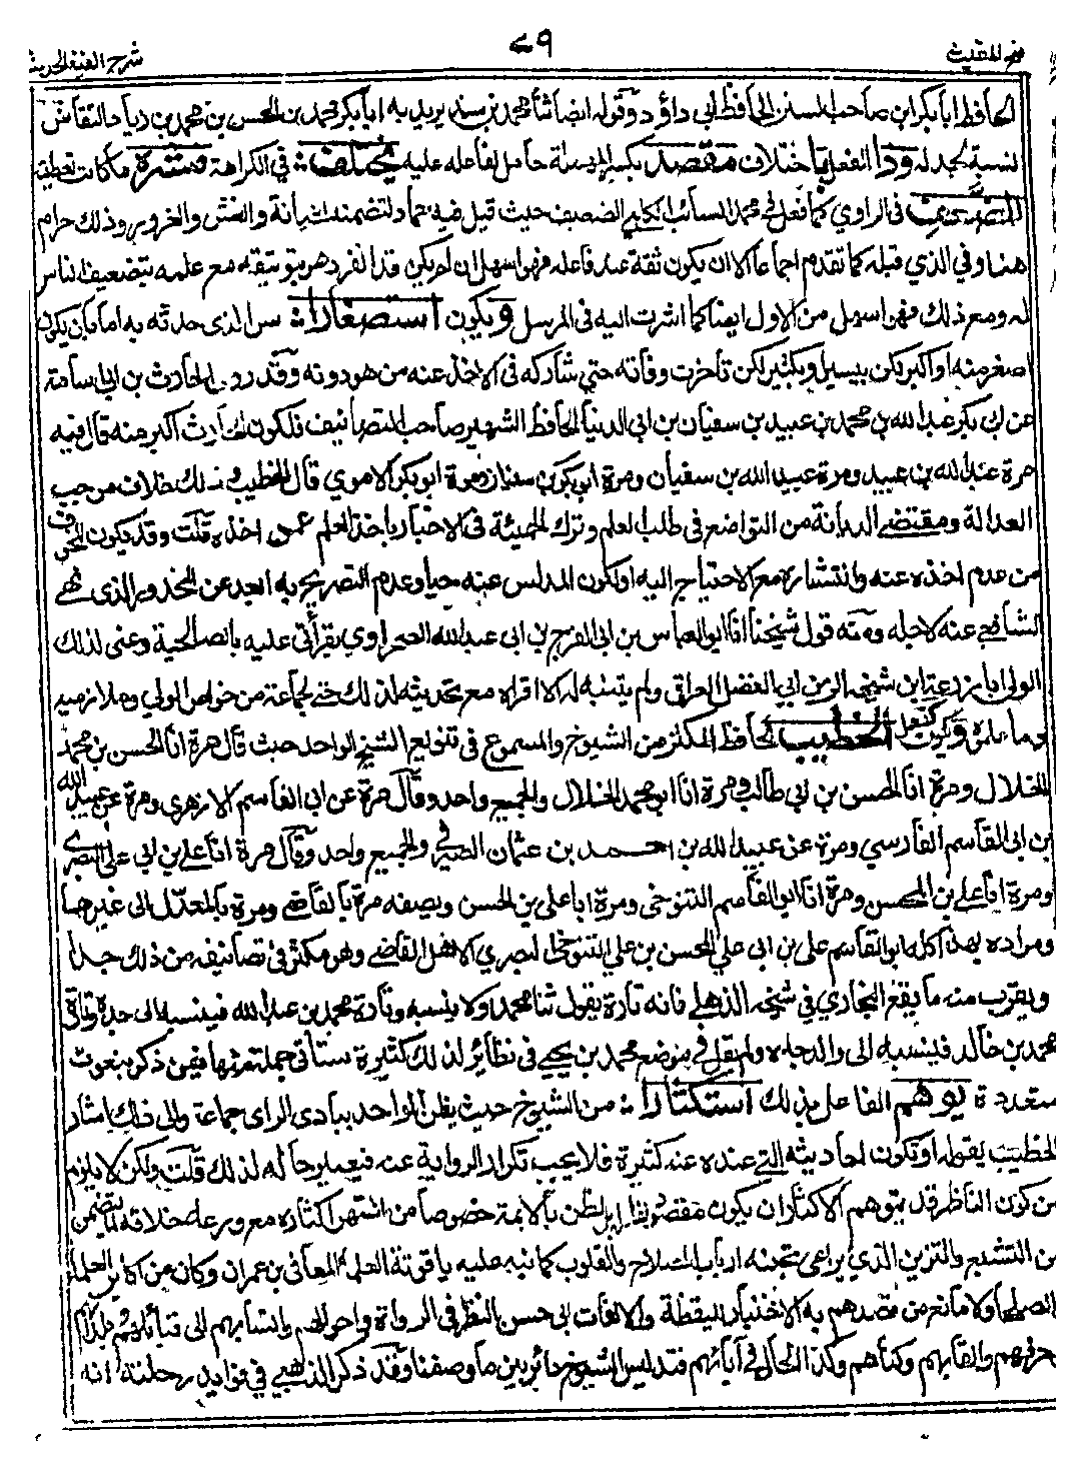 فتح المغيث
٧٩
شرح الفية الحديث
الحافظ ابا بكر ابن صاحب السنن الحافظ ابي داؤد وقوله ايضا ثنا محمد بن سند يريد به ابا بكر محمد بن الحسن بن محمد بن زياد النقاش
نسبة لجد له وذا الفعل باختلاف مقصد بكسر المهملة حامل لفاعله عليه يختلف في الكراهة فشره ما كانت تغطية
للضعف في الراوي كما فعل في محمد بن السائب الكلبي الضعيف حيث قيل فيه حماد لتضمنه الخيانة والغش والغرور وذلك حرام
هنا وفي الذي قبله كما تقدم اجماعا الا ان يكون ثقة عند فاعله فهو اسهل ان لم يكن قد انفرد هو بتوثيقه مع علمه بتضعيف الناس
له ومع ذلك فهو اسهل من الاول ايضا كما اشرت اليه في المرسل ويكون استصغارا من الذي حدثه به اما بان يكون
اصغر منه او اكبر لكن بيسير او بكثير لكن تاخرت وفاته حتى شاركه في الاخذ عنه من هو دونه وقد روى الحارث بن ابي اسامة
عن ابي بكر عبد الله بن محمد بن عبيد بن سفيان بن ابي الدنيا الحافظ الشهير صاحب التصانيف فلكون الحارث اكبر منه قال فيه
مرة عبد الله بن عبيد ومرة عبيد الله بن سفيان ومرة ابو بكر بن سفيان ومرة ابو بكر الاموي قال الخطيب وذلك خلاف موجب
العدالة ومقتضى الديانة من التواضع في طلب العلم وترك الحمية في الاخبار باخذ العلم عمن اخذه قلت وقد يكون للخوف
من عدم اخذه عنه وانتشاره مع الاحتياج اليه او لكون المدلس عنه حيا وعدم التصريح به ابعد عن المحذور الذي نهى
الشافعي عنه لاجله ومنه قول شيخنا انا ابو العباس بن ابي الفرج بن ابي عبد الله الصحراوي بقرأتي عليه بالصالحية وعنى لذلك
الولي ابا زرعة ابن شيخه الزين ابي الفضل العراقي ولم يتنبه له الا افراد مع تحديثه لذلك حتى لجماعة من خواص الولي وملازميه
وما علموه ويكون كفعل الخطيب الحافظ المكثر من الشيوخ والمسموع في تنويع الشيخ الواحد حيث قال مرة انا الحسن بن محمد
الخلال ومرة انا الحسن بن ابي طالب ومرة انا ابو محمد الخلال والجميع واحد وقال مرة عن ابي القاسم الازهري ومرة عن عبيد الله
بن ابي القاسم الفارسي ومرة عن عبيد الله بن احمد بن عثمان الصيرفي والجميع واحد وقال مرة انا علي بن ابي علي البصري
ومرة انا علي بن المحسن ومرة انا ابو القاسم التنوخي ومرة انا علي بن الحسن ويصفه مرة بالقاضي ومرة بالمعدل الى غيرها
ومراده بهذا كله ابو القاسم علي بن ابي علي المحسن بن علي التنوخي البصري الاصل القاضي وهو مكثر في تصانيفه من ذلك جدا
ويقرب منه ما يقع للبخاري في شيخه الذهلي فانه تارة يقول ثنا محمد ولا ينسبه وتارة محمد بن عبد الله فينسبه الى جده وتارة
محمد بن خالد فينسبه الى والد جده ولم يقل في موضع محمد بن يحيى في نظائر لذلك كثيرة ستأتي جملة منها فيمن ذكر بنعوت
متعددة يوهم الفاعل بذلك استكثارا من الشيوخ حيث يظن الواحد ببادي الراي جماعة والى ذلك اشار
الخطيب بقوله او تكون احاديثه التي عنده عنه كثيرة فلا يحب تكرار الرواية عنه فيغير حاله لذلك قلت ولكن لا يلزم
من كون الناظر قد يتوهم الاكثار ان يكون مقصودا لفاعله بل الظن بالائمة خصوصا من اشتهر اكثاره مع ورعه خلافه لما يتضمن
من التشبع والتزين الذي يراعى تجنبه ارباب الصلاح والقلوب كما نبه عليه ياقوتة العلماء المعافى بن عمران وكان من اكابر العلماء
الصلحاء ولا مانع من قصدهم به الاختبار لليقظة والالفات الى حسن النظر في الرواة واحوالهم وانسابهم الى قبائلهم وبلدانهم
وحرفهم والقابهم وكناهم وكذا الحال في آبائهم فتدليس الشيوخ دائر بين ما وصفنا وقد ذكر الذهبي في فوايد رحلته انه